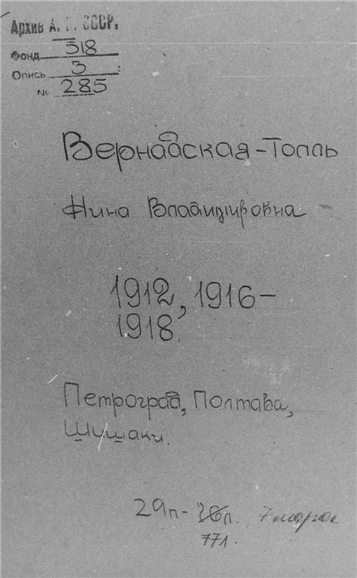 Архив А. Н. СССР.
Фонд 518
Опись 3
№ 285
Вернадская-Толль
Нина Владимировна
1912, 1916-
1918.
Петроград, Полтава,
Шушаки.
29п- п. 7 марок
77л.